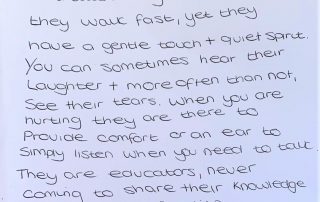 they walk fast, yet they
have a gentle touch + quiet spirit.
You can sometimes hear their
Laughter + more often than not,
See their tears. When you are
hurting they are there to
Provide comfort or an ear to
Simply listen when you need to talk.
They are educators, never
Coming to share their knowledge